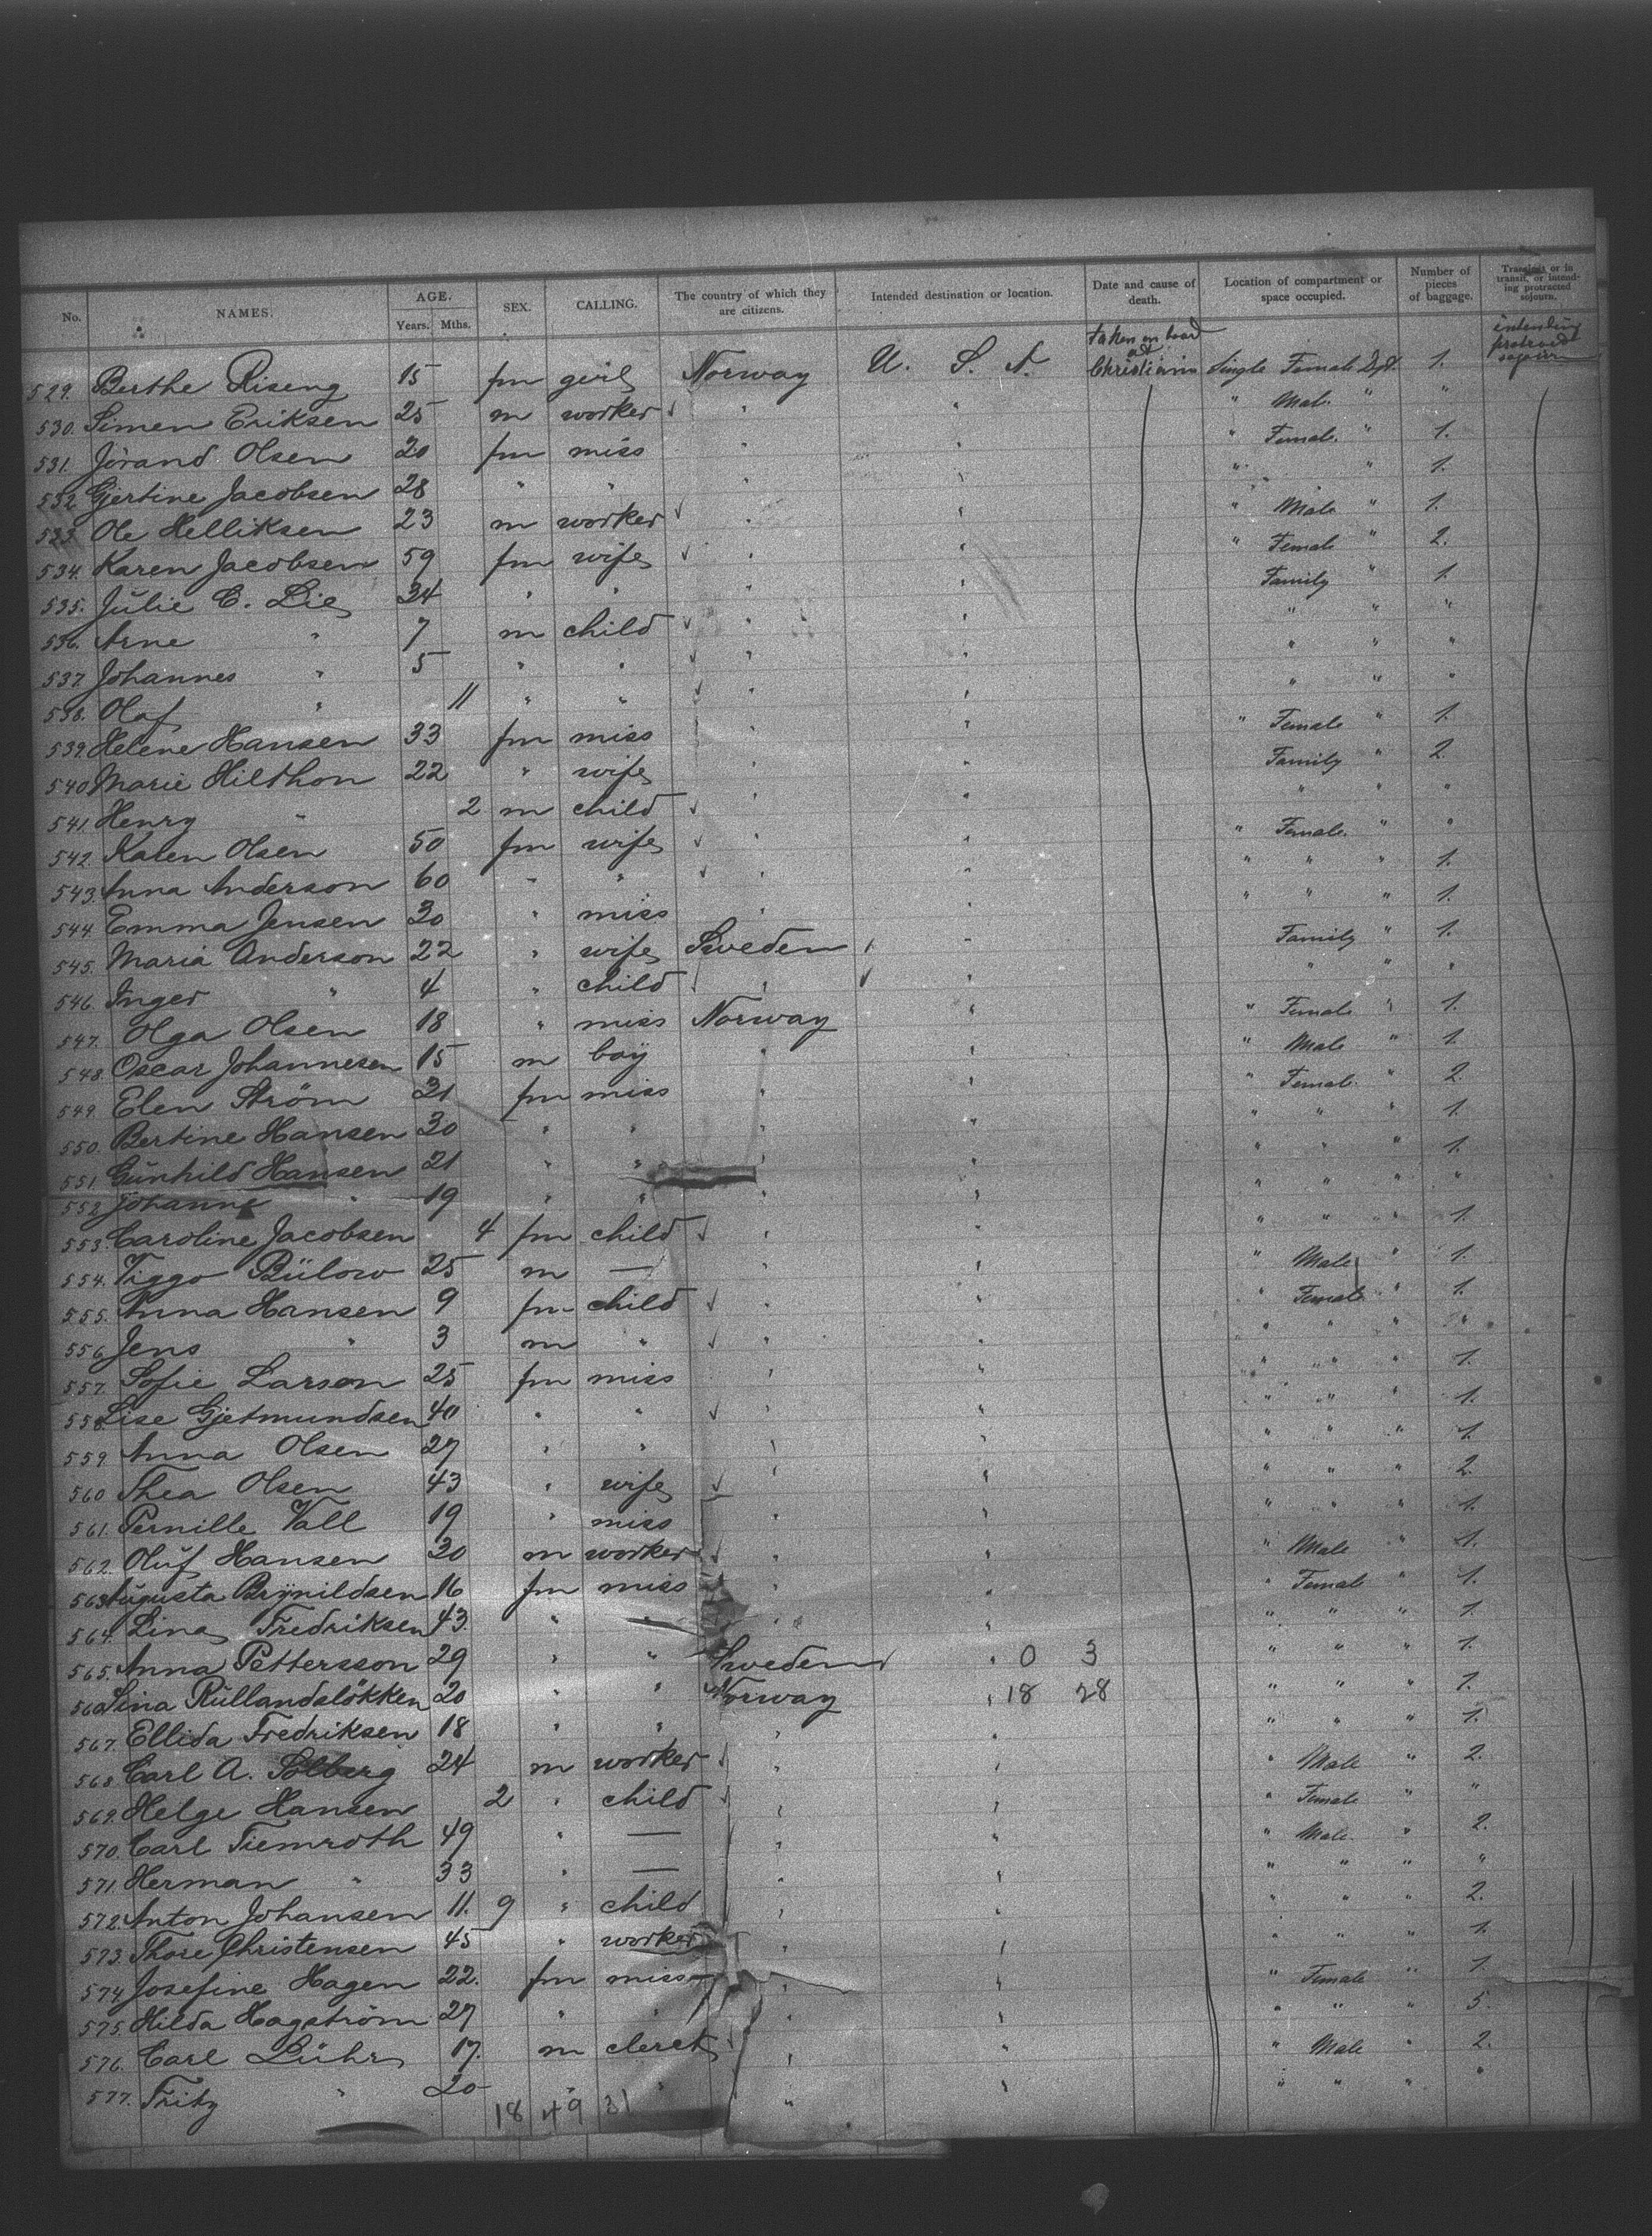 No. NAMES. AGE. Years. Mths. SEX. CALLING. The country of which they are citizens. Intended destination or location. Date and cause of death. Location of compartment or space occupied. Number of pieces of baggage. Transient or in transit, or intending protracted sojourn.
529. Berthe Riseng 15 fm girl Norway U. S. A. taken on board at Christiania Single Female Dpt. 1. intending protract sojourn
530. Simen Eriksen 25 m worker " " " Male " "
531. Jörand Olsen 20 fm miss " " " Female " 1.
532. Gjertine Jacobsen 28 " " " " " " " 1.
533. Ole Helliksen 23 m worker " " " Male " 1.
534. Karen Jacobsen 59 fm wife " " " Female " 2.
535. Julie C. Lie 34 " " " " Family " 1.
536. Arne " 7 m child " " " " "
537. Johannes " 5 " " " " " " "
538. Olaf " 11 " " " " " " "
539. Helene Hansen 33 fm miss " " " Female " 1.
540. Marie Hilthon 22 " wife " " Family " 2.
541. Henry " 2 m child " " " " "
542. Karen Olsen 50 fm wife " " " Female " "
543. Anna Anderson 60 " " " " " " " 1.
544. Emma Jensen 30 " miss " " " " " 1.
545. Maria Anderson 22 " wife Sweden " Family " 1.
546. Inger " 4 " child " " " " "
547. Olga Olsen 18 " miss Norway " " Female " 1.
548. Oscar Johannesen 15 m boy " " " Male " 1.
549. Elen Ström 21 fm miss " " " Female " 2.
550. Bertine Hansen 30 " " " " " " " 1.
551. Gunhild Hansen 21 " " " " " " " 1.
552. Johanne " 19 " " " " " " " "
553. Caroline Jacobsen 4 fm child " " " " " 1.
554. Viggo Bülow 25 m — " " " Male " 1.
555. Anna Hansen 9 fm child " " " Female " 1.
556. Jens " 3 m " " " " " " "
557. Sofie Larson 25 fm miss " " " " " 1.
558. Lise Gjetmundsen 40 " " " " " " " 1.
559. Anna Olsen 27 " " " " " " " 1.
560 Thea Olsen 43 " wife " " " " " 2.
561. Pernille Vall 19 " miss " " " " " 1.
562. Oluf Hansen 30 m worker " " " Male " 1.
563. Augusta Brynildsen 16 fm miss " " " Female " 1.
564. Lina Fredriksen 43. " " " " " " " 1.
565. Anna Pettersson 29 " " Sweden " 0 3 " " " 1.
566. Lina Rullandslökken 20 " " Norway " 18 28 " " " 1.
567. Ellida Fredriksen 18 " " " " " " " 1.
568 Carl A. Solberg 24 m worker " " " Male " 2.
569. Helge Hansen 2 " child " " " Female " "
570. Carl Tiemroth 49 " — " " " Male " 2.
571. Herman " 33 " — " " " " " "
572. Anton Johansen 11. 9 " child " " " " " 2.
573. Thore Christensen 45 " worker " " " " " 1.
574. Josefine Hagen 22. fm miss " " " Female " 1.
575. Hilda Hagström 27 " " " " " " " 5.
576. Carl Lühr 17. m clerck " " " Male " 2.
577. Fritz " 20 " " " " " " " "
18 49 31